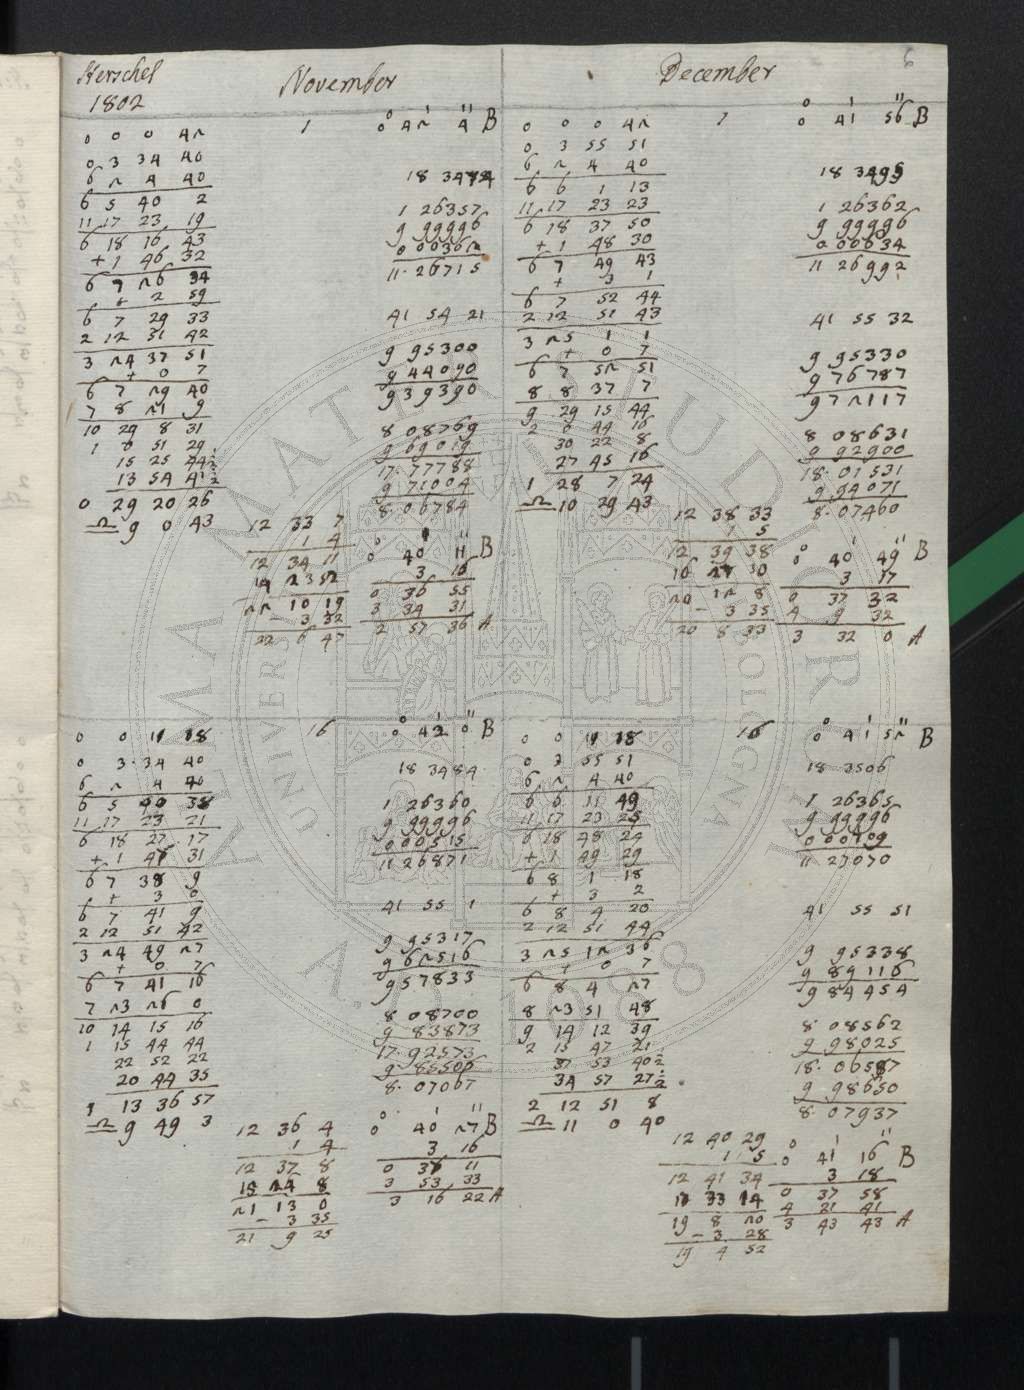 6
Herschel
1802
November
1
0 0 0 42
0 3 34 40
6 2 4 40
6 5 40 2
11 17 23 19
6 18 16 43
+ 1 46 32
6 7 26 34
+ 2 59
6 7 29 33
2 12 51 42
3 24 37 51
+ 0 7
6 7 29 40
7 8 21 9
10 29 8 31
1 0 51 29
15 25 44 1/2
13 54 41 1/2
0 29 20 26
♎ 9 0 43
0° 42' 4'' B
18 3484
1 26357
9 99996
0 00362
11. 26715
41 54 21
9 95300
9 44090
9 39390
8 08769
9 69019
17. 77788
9 71004
8. 06784
12 33 7
1 4
12 34 11
22 10 19
- 3 32
22 6 47
0° 40' 11'' B
3 16
0 36 55
3 34 31
2 57 36 A
December
1
0 0 0 42
0 3 55 51
6 2 4 40
6 6 1 13
11 17 23 23
6 18 37 50
+ 1 48 30
6 7 49 43
+ 3 1
6 7 52 44
2 12 51 43
3 25 1 1
+ 0 7
6 7 52 51
8 8 37 7
9 29 15 44
2 0 44 16
30 22 8
27 45 16
1 28 7 24
♎ 10 29 43
0° 41' 56'' B
18 3495
1 26362
9 99996
0 00634
11 26992
41 55 32
9 95330
9 76787
9 72117
8 08631
9 92900
18. 01531
9 94071
8. 07460
12 38 33
1 5
12 39 38
20 12 8
- 3 35
20 8 33
0° 40' 49'' B
3 17
0 37 32
4 9 32
3 32 0 A
16
0 0 11 18
0 3. 34 40
6 2 4 40
6 5 40 38
11 17 23 21
6 18 27 17
+ 1 47 31
6 7 38 9
+ 3 0
6 7 41 9
2 12 51 42
3 24 49 27
+ 0 7
6 7 41 16
7 23 26 0
10 14 15 16
1 15 44 44
22 52 22
20 44 35
1 13 36 57
♎ 9 49 3
0° 42' 0'' B
18 3484
1 26360
9 99996
0 00515
11 26871
41 55 1
9 95317
9 62516
9 57833
8 08700
9 83873
17. 92573
9 86506
8. 07067
12 36 4
1 4
12 37 8
21 13 0
- 3 35
21 9 25
0° 40' 27'' B
3 16
0 37 11
3 53 33
3 16 22 A
16
0 0 11 18
0 3 55 51
6 2 4 40
6 6 11 49
11 17 23 25
6 18 48 24
+ 1 49 29
6 8 1 18
+ 3 2
6 8 4 20
2 12 51 44
3 25 12 36
+ 0 7
6 8 4 27
8 23 51 48
9 14 12 39
2 15 47 21
37 53 40 1/2
34 57 27 1/2
2 12 51 8
♎ 11 0 40
0° 41' 52'' B
18 3506
1 26365
9 99996
0 00709
11 27070
41 55 51
9 95338
9 89116
9 84454
8 08562
9 98025
18. 06587
9 98650
8 07937
12 40 29
1 5
12 41 34
19 8 20
- 3 28
19 4 52
0° 41' 16'' B
3 18
0 37 58
4 21 41
3 43 43 A
ALMA MATER STUDIORUM
UNIVERSITÀ DI BOLOGNA
A.D. 1088